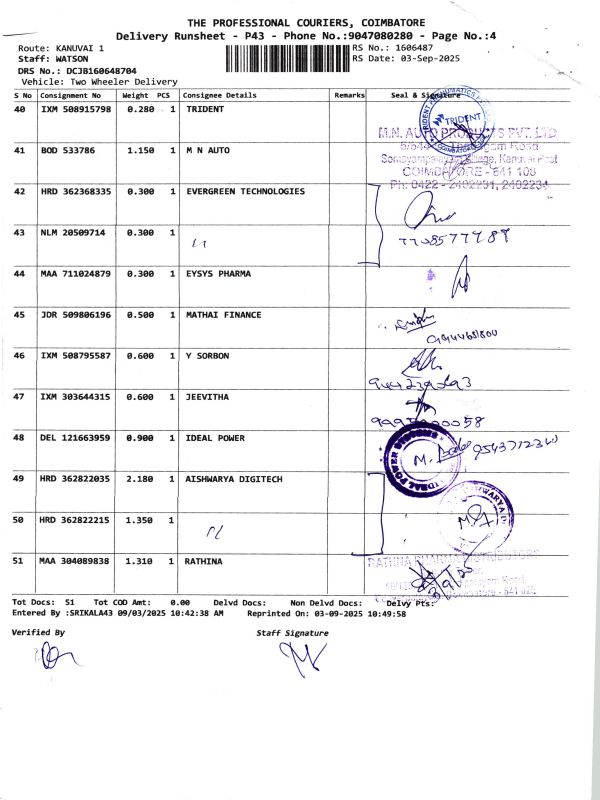 THE PROFESSIONAL COURIERS, COIMBATORE
Delivery Runsheet - P43 - Phone No.:9047080280 - Page No.:4
Route: KANUVAI 1 RS No.: 1606487
Staff: WATSON RS Date: 03-Sep-2025
DRS No.: DCJB160648704
Vehicle: Two Wheeler Delivery
S No Consignment No Weight PCS Consignee Details Remarks Seal & Signature
40 IXM 508915798 0.280 1 TRIDENT TRIDENT
M.N. AUTO PRODUCTS PVT. LTD
41 BOD 533786 1.150 1 M N AUTO
COIMBATORE - 641 108
Ph: 0422 - 2402231, 2402234
42 HRD 362368335 0.300 1 EVERGREEN TECHNOLOGIES
43 NLM 20509714 0.300 1
44 MAA 711024879 0.300 1 EYSYS PHARMA
45 JDR 509806196 0.500 1 MATHAI FINANCE
46 IXM 508795587 0.600 1 Y SORBON
47 IXM 303644315 0.600 1 JEEVITHA
48 DEL 121663959 0.900 1 IDEAL POWER
49 HRD 362822035 2.180 1 AISHWARYA DIGITECH
50 HRD 362822215 1.350 1
51 MAA 304089838 1.310 1 RATHINA
Tot Docs: 51 Tot COD Amt: 0.00 Delvd Docs: Non Delvd Docs: Delvy Pts:
Entered By :SRIKALA43 09/03/2025 10:42:38 AM Reprinted On: 03-09-2025 10:49:58
Verified By Staff Signature